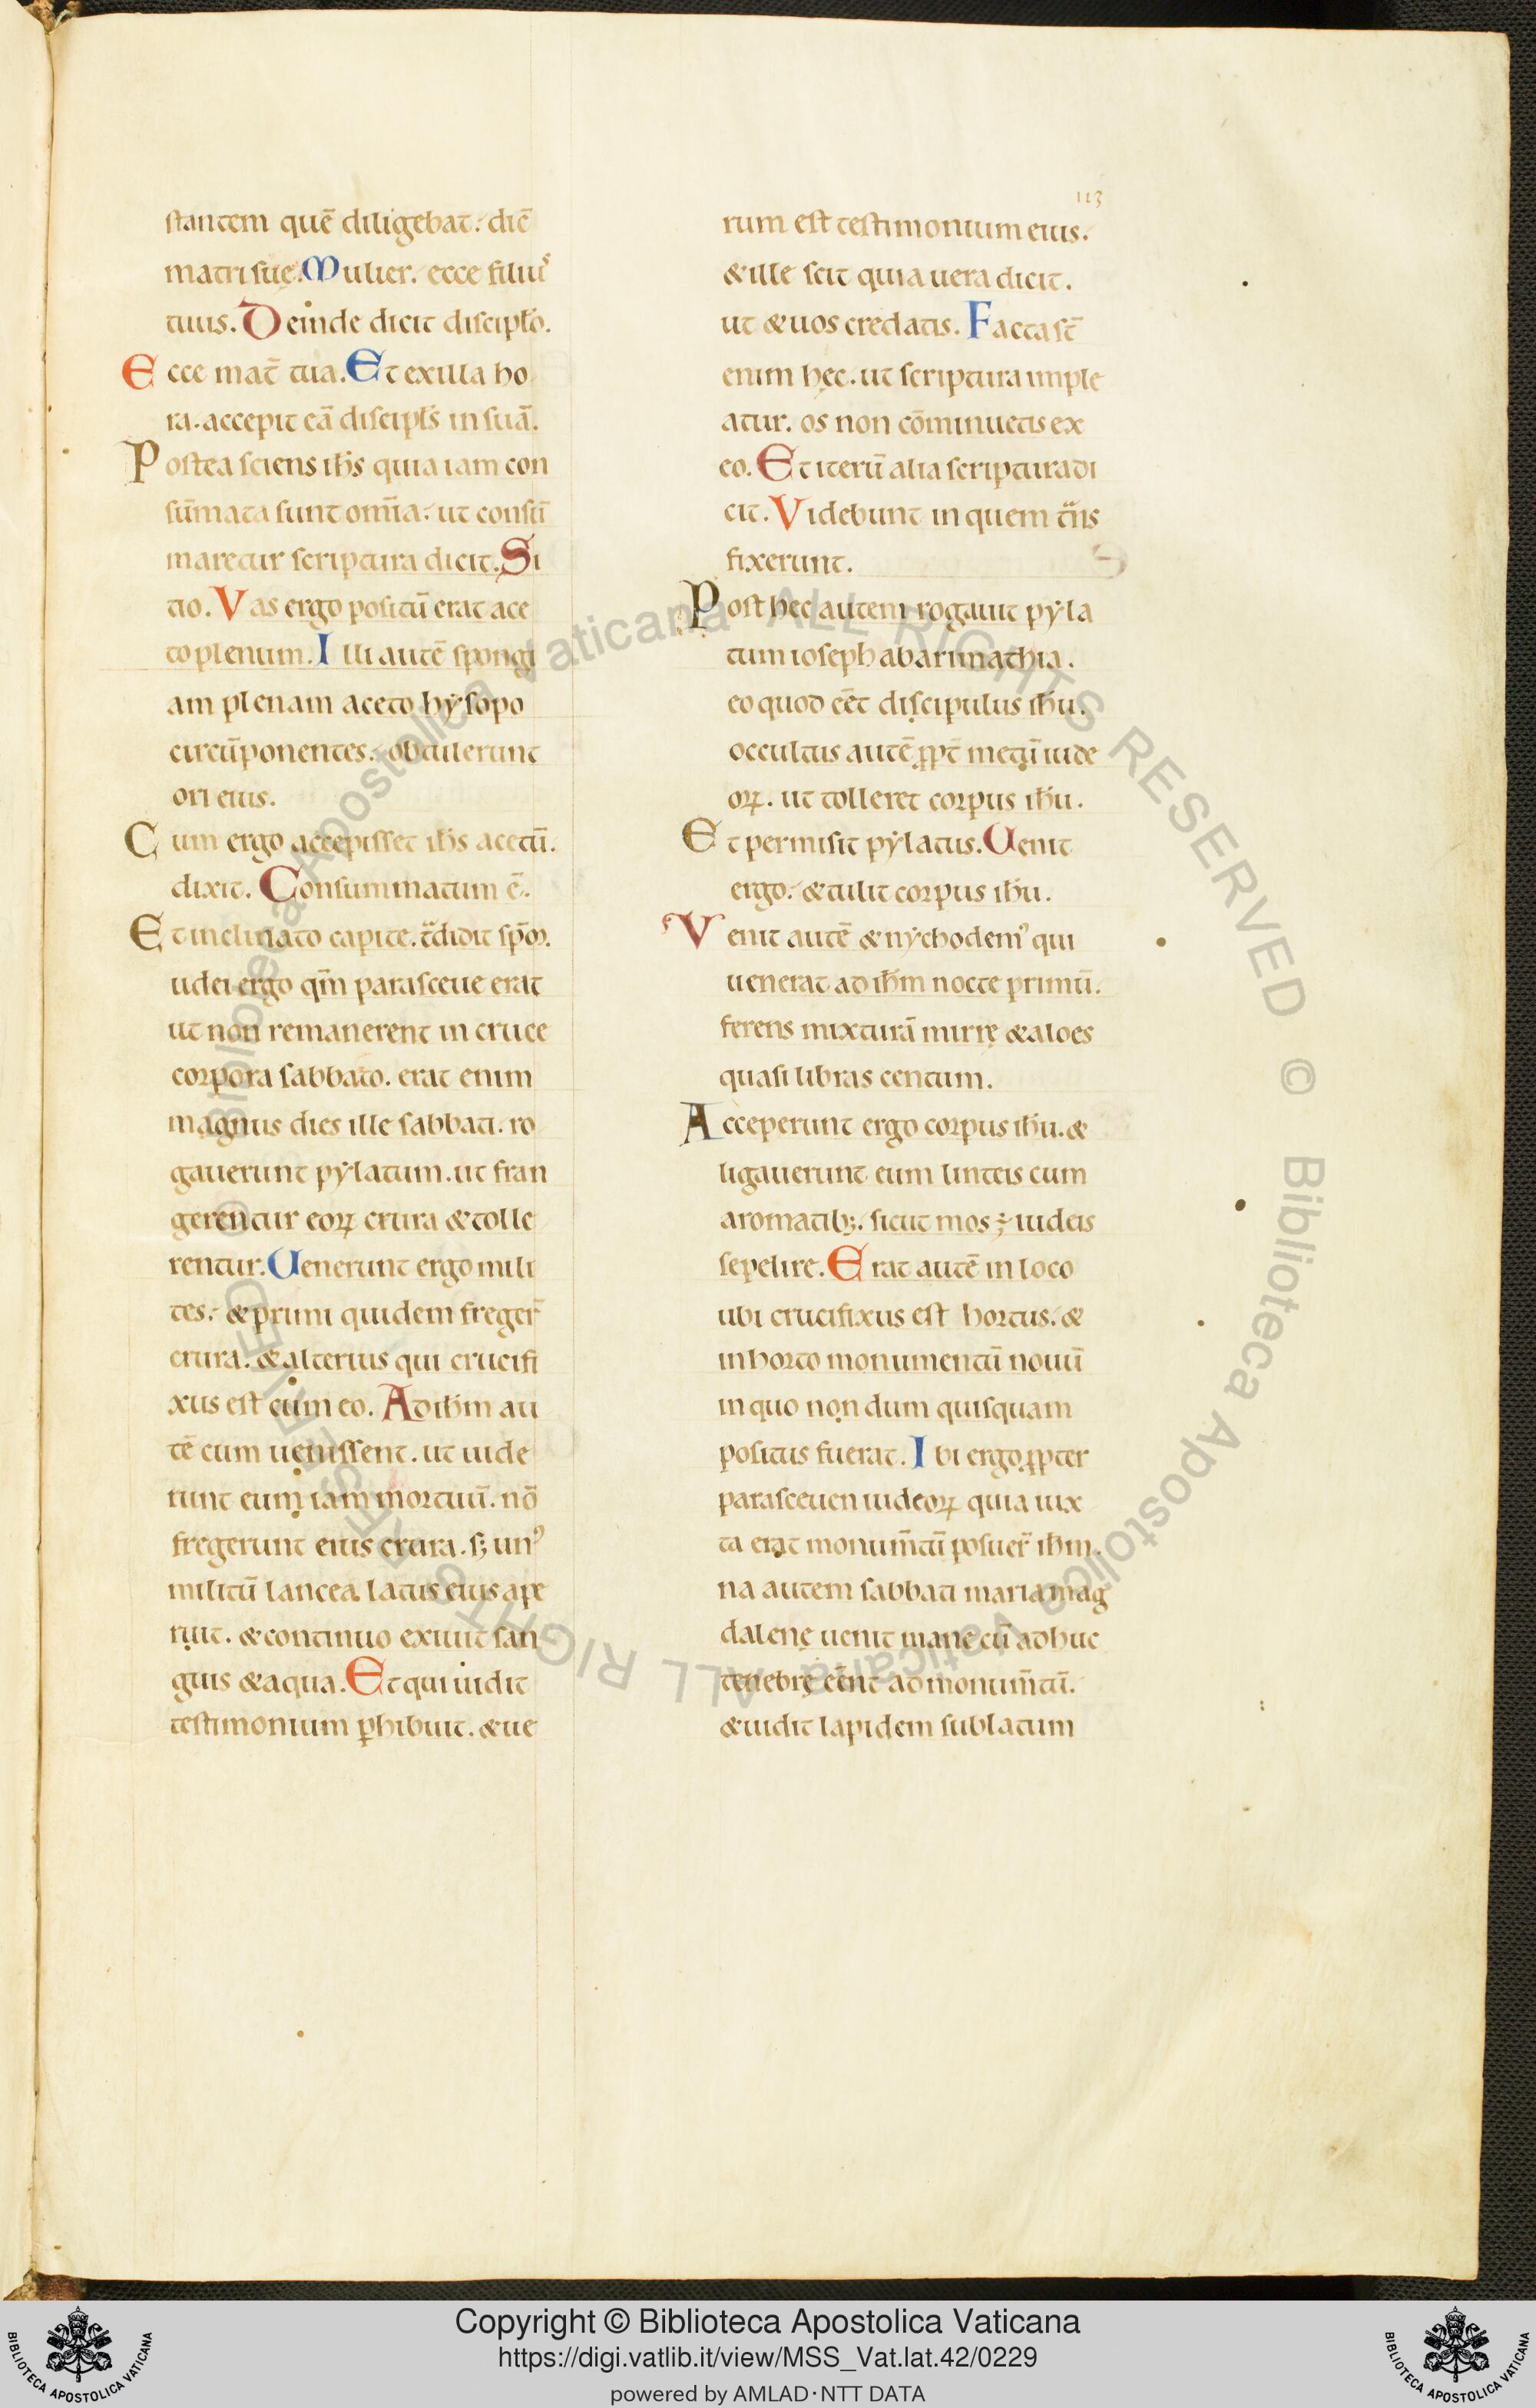 113
stantem quē diligebat. dic̄
matri suę. Mulier. ecce filiuˢ
tuus. Deinde dicit discipłō.
Ecce mat̄ tua. Et ex illa ho
ra. accepit eā discipłs in suā.
Postea sciens ih̄s quia iam con
sūmata sunt om̄ia. ut consū
maretur scriptura dicit. Si
tio. Vas ergo positū erat ace
to plenum. Illi autē spongi
am plenam aceto hẏsopo
circūponentes. obtulerunt
ori eius.
Cum ergo accepisset ih̄s acetū.
dixit. Consummatum ē.
Et inclinato capite. t̄didit sp̄m.
udei ergo qm̄ parasceue erat
ut non remanerent in cruce
corpora sabbato. erat enim
magnus dies ille sabbati. ro
gauerunt pẏlatum. ut fran
gerentur eoꝝ crura & tolle
rentur. Uenerunt ergo mili
tes. & primi quidem freger̄
crura. & alterius qui crucifi
xus est cum eo. Ad ih̄m au
tē cum uenissent. ut uide
runt eum iam mortuū. nō
fregerunt eius crura. s; unꝰ
militū lancea latus eius ape
ruit. & continuo exiuit san
guis & aqua. Et qui uidit
testimonium ꝑhibuit. & ue
rum est testimonium eius.
& ille scit quia uera dicit.
ut & uos credatis. Facta st̄
enim hęc. ut scriptura imple
atur. os non cōminuetis ex
eo. Et iterū alia scriptura di
cit. Videbunt in quem t̄ns
fixerunt.
Post hec autem rogauit pẏla
tum ioseph ab arimathia.
eo quod eēt discipulus ih̄u.
occultus autē ꝓpt̄ metū iude
oꝝ. ut tolleret corpus ih̄u.
Et permisit pẏlatus. Uenit
ergo. & tulit corpus ih̄u.
Venit autē & nẏchodemꝰ qui
uenerat ad ih̄m nocte primū.
ferens mixturā mirrę & aloes
quasi libras centum.
Acceperunt ergo corpus ih̄u. &
ligauerunt eum linteis cum
aromatib;. sicut mos ÷ iudeis
sepelire. Erat autē in loco
ubi crucifixus est hortus. &
in horto monumentū nouū
in quo non dum quisquam
positus fuerat. Ibi ergo ꝓpter
parasceuen iudeoꝝ quia iux
ta erat monum̄tū posuer̄ ih̄m.
na autem sabbati maria mag
dalenę uenit mane cū adhuc
tenebrę eēnt ad monum̄tū.
& uidit lapidem sublatum
Copyright © Biblioteca Apostolica Vaticana
https://digi.vatlib.it/view/MSS_Vat.lat.42/0229
powered by AMLAD·NTT DATA